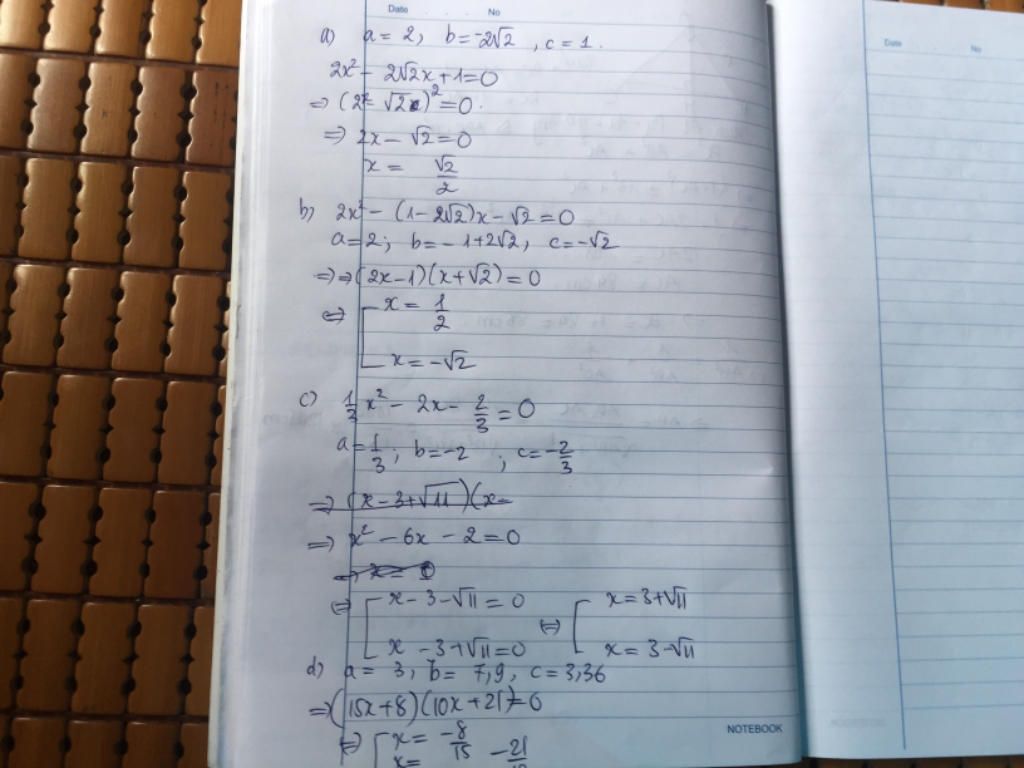 Date No
a) a = 2, b = -2√2, c = 1.
2x² - 2√2x + 1 = 0
⇒ (2x - √2)² = 0.
⇒ 2x - √2 = 0
x = √2/2
b) 2x² - (1 - 2√2)x - √2 = 0
a = 2; b = -1 + 2√2, c = -√2
⇒ ⇒ (2x - 1)(x + √2) = 0
⇔ [ x = 1/2
x = -√2
c) 1/3 x² - 2x - 2/3 = 0
a = 1/3; b = -2; c = -2/3
⇒ (x - 3 + √11)(x -
⇒ x² - 6x - 2 = 0
⇔ x = 0
⇔ [ x - 3 - √11 = 0 ⇔ [ x = 3 + √11
x - 3 + √11 = 0 x = 3 - √11
d) a = 3, b = 7,9, c = 3,36
⇒ (15x + 8)(10x + 21) = 0
⇔ [ x = -8/15
x = -21/10
NOTEBOOK
Date No